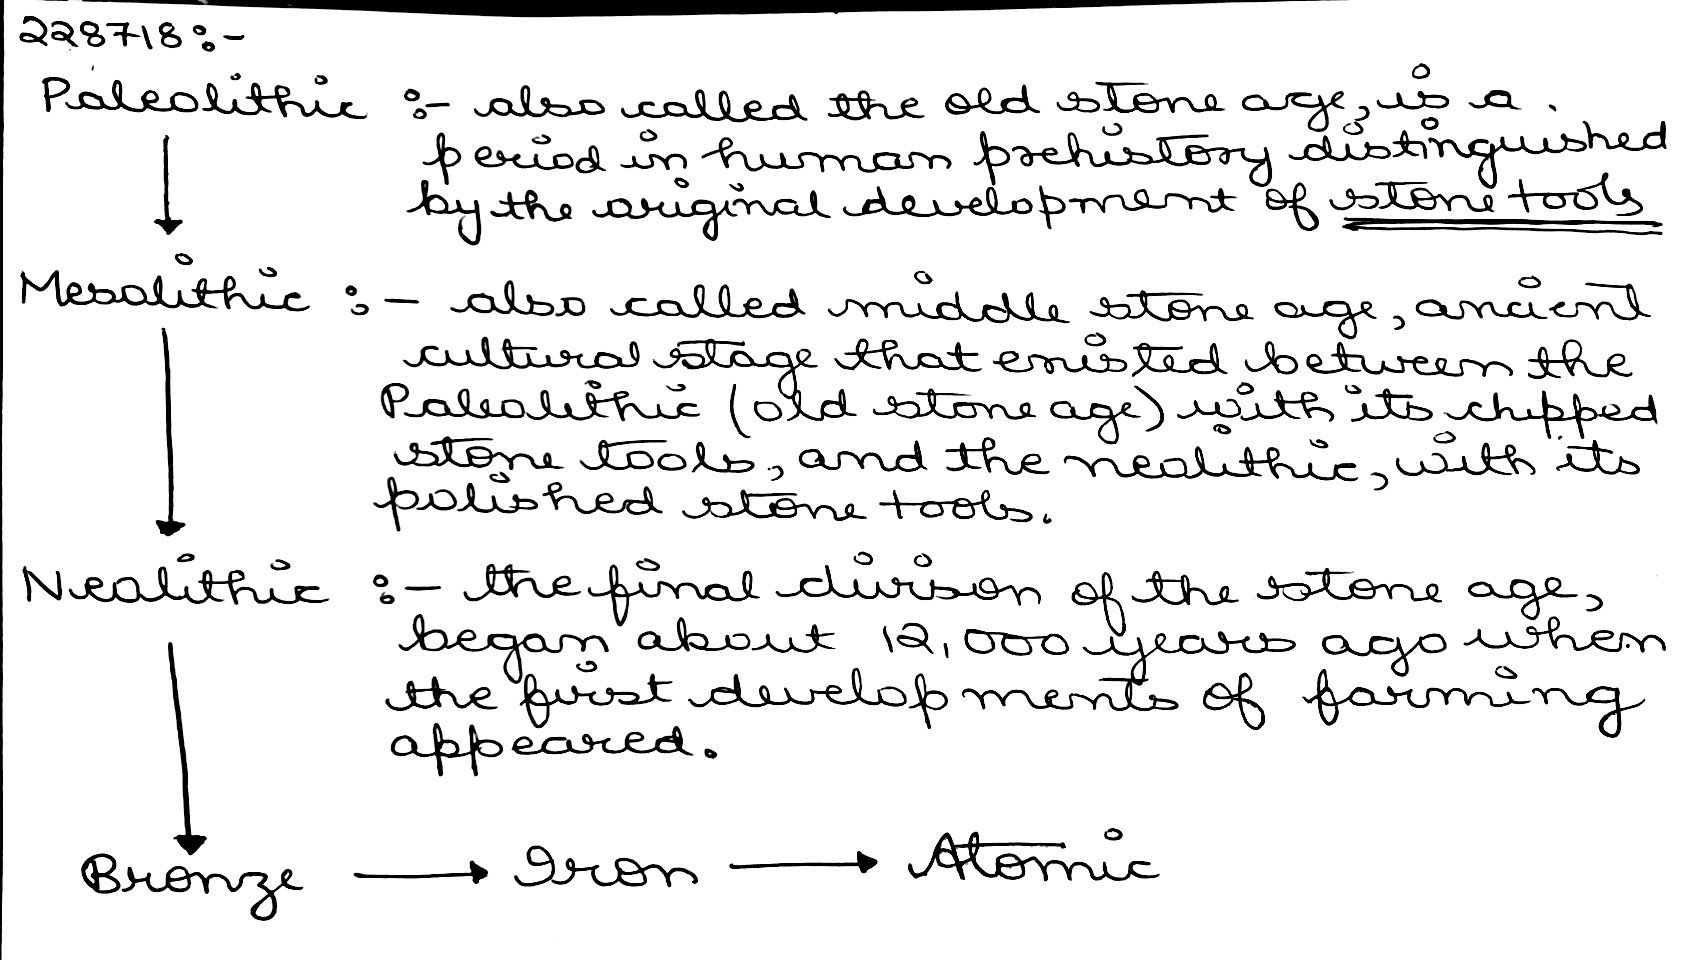 228718:-
Paleolithic :- also called the old stone age, is a
period in human prehistory distinguished
by the original development of stone tools
Mesolithic :- also called middle stone age, ancient
cultural stage that existed between the
Paleolithic (old stone age) with its chipped
stone tools, and the neolithic, with its
polished stone tools.
Neolithic :- the final divison of the stone age,
began about 12,000 years ago when
the first developments of farming
appeared.
Bronze → Iron → Atomic